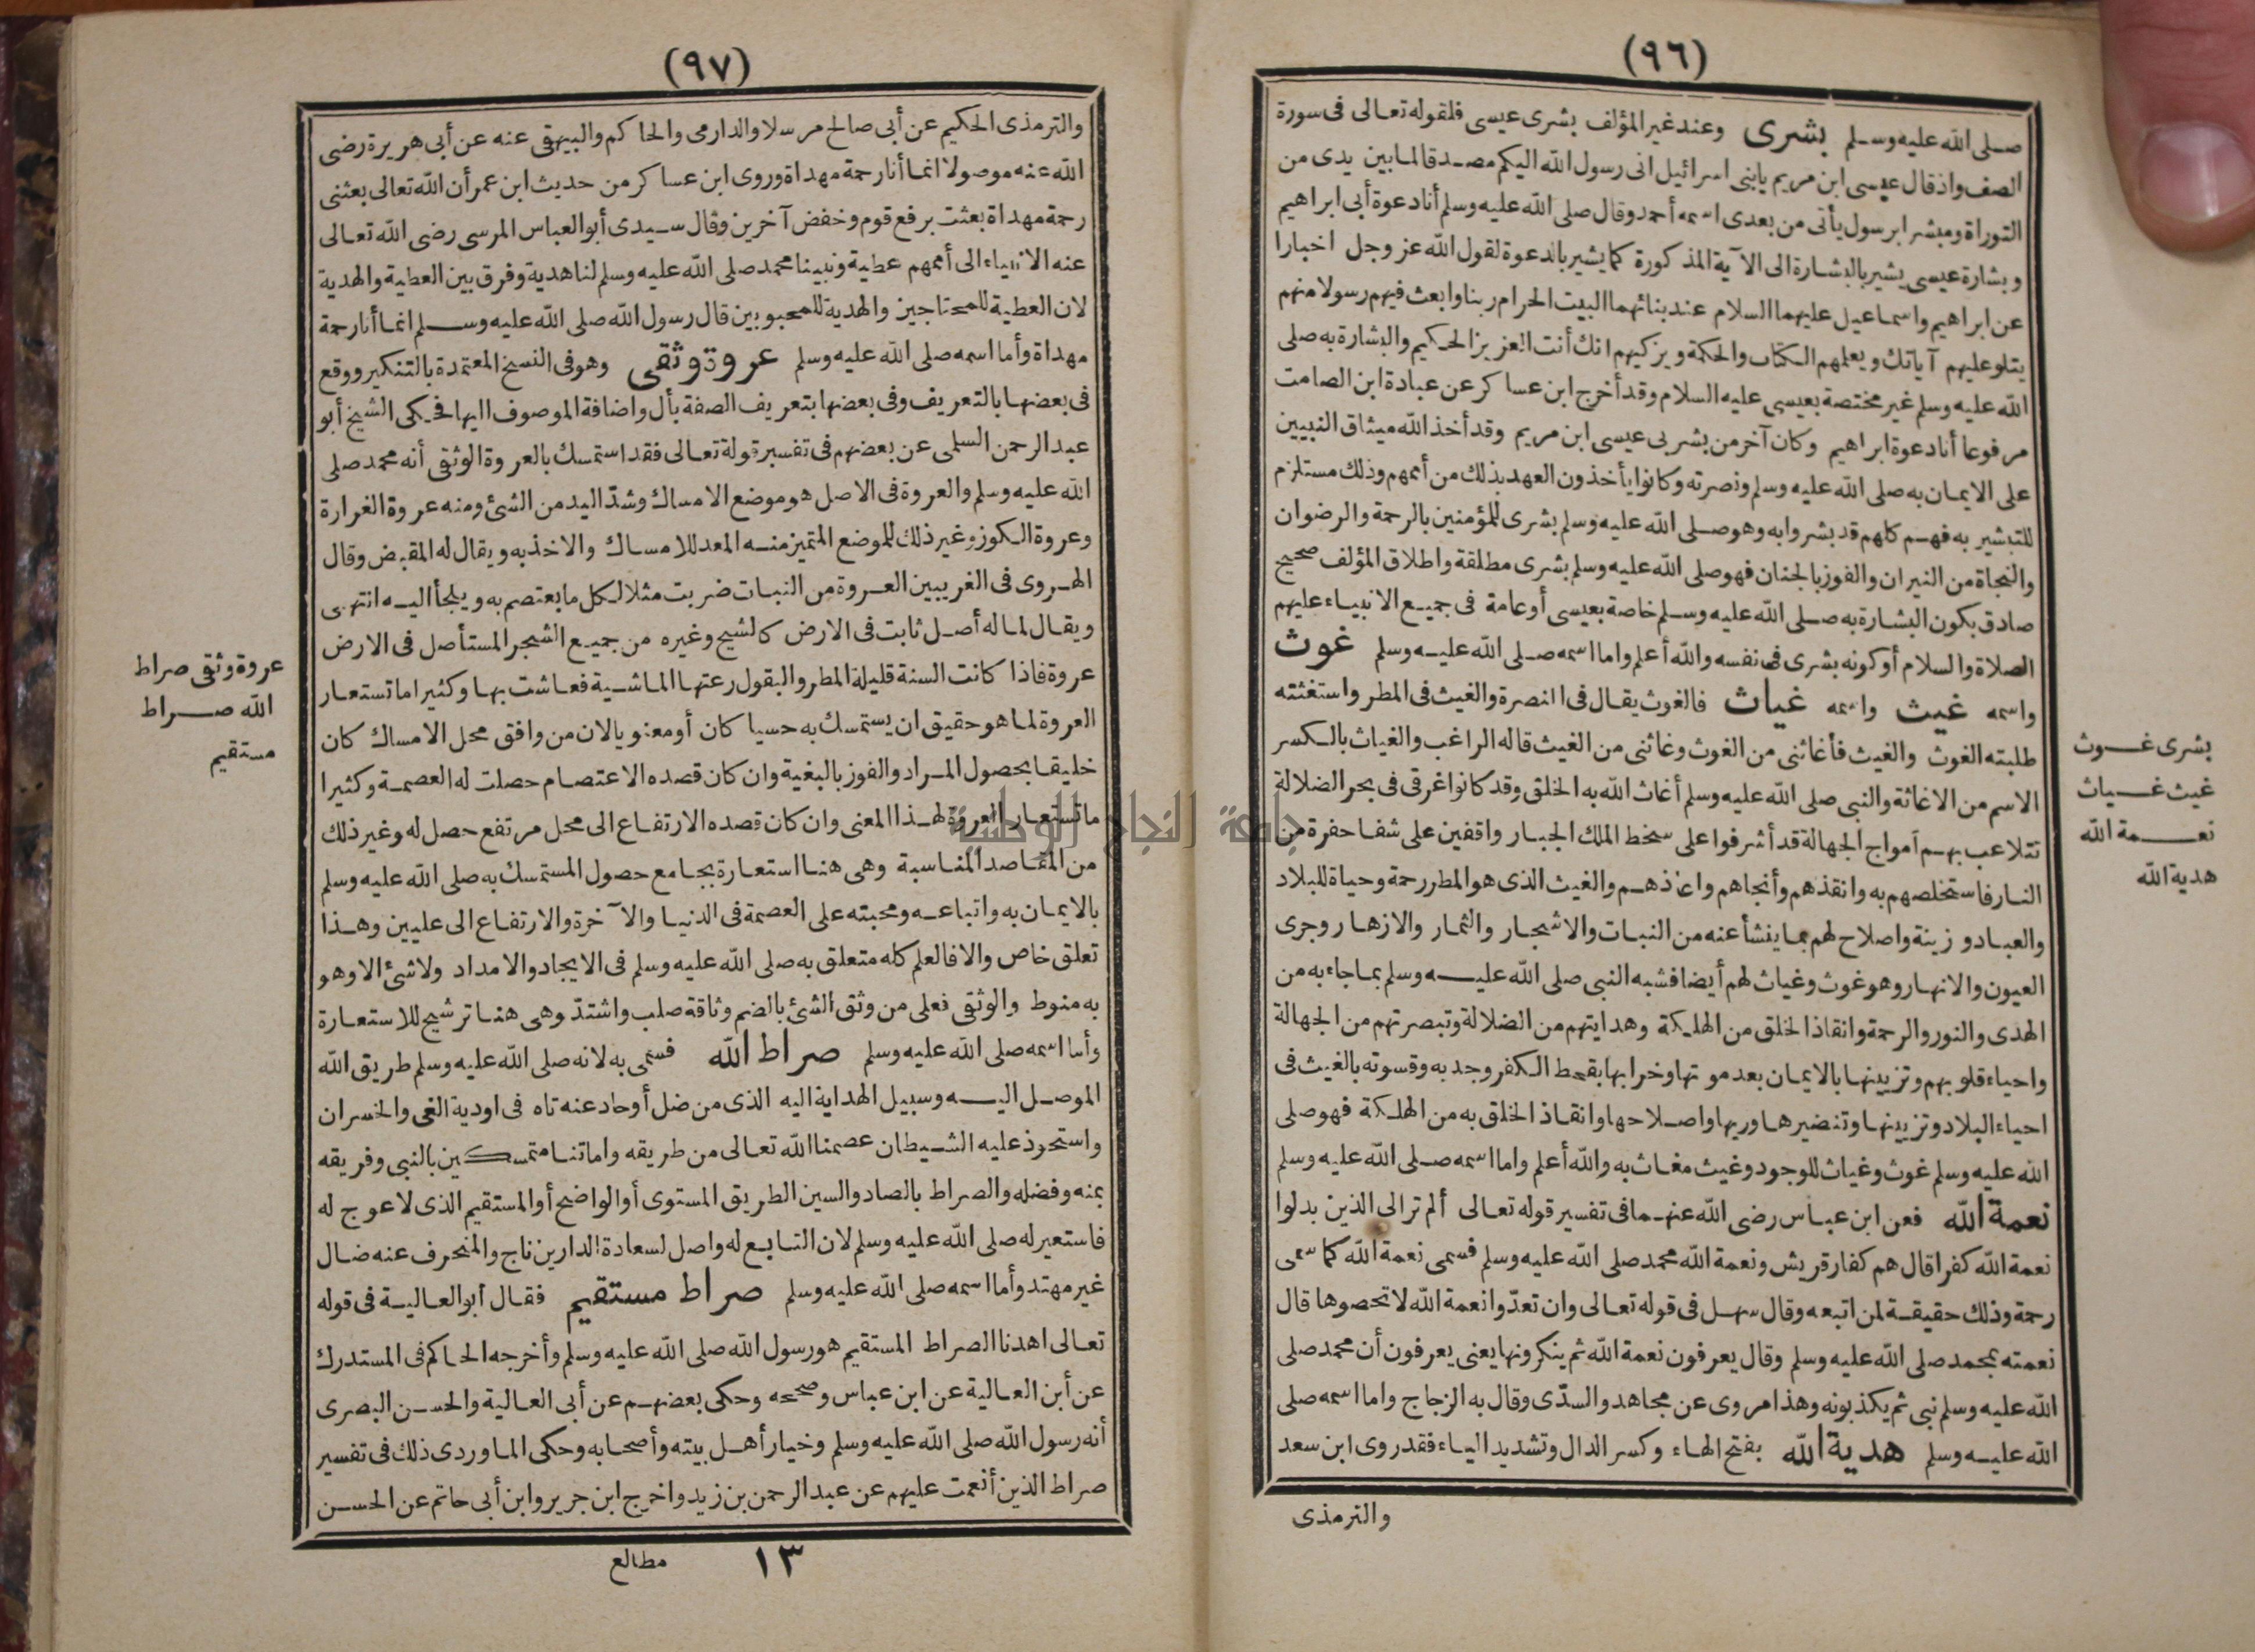 (٩٦)
صلى الله عليه وسلم بشرى وعند غير المؤلف بشرى عيسى فلقوله تعالى فى سورة
الصف واذ قال عيسى ابن مريم يابنى اسرائيل انى رسول الله اليكم مصدقا لما بين يدى من
التوراة ومبشرا برسول يأتى من بعدى اسمه أحمد وقال صلى الله عليه وسلم أنا دعوة أبى ابراهيم
وبشارة عيسى يشير بالبشارة الى الآية المذكورة كما يشير بالدعوة لقول الله عز وجل اخبارا
عن ابراهيم واسماعيل عليهما السلام عند بنائهما البيت الحرام ربنا وابعث فيهم رسولا منهم
يتلو عليهم آياتك ويعلمهم الكتاب والحكمة ويزكيهم انك أنت العزيز الحكيم والبشارة به صلى
الله عليه وسلم غير مختصة بعيسى عليه السلام وقد أخرج ابن عساكر عن عبادة ابن الصامت
مرفوعا أنا دعوة ابراهيم وكان آخر من بشر بى عيسى ابن مريم وقد أخذ الله ميثاق النبيين
على الايمان به صلى الله عليه وسلم ونصرته وكانوا يأخذون العهد بذلك من أممهم وذلك مستلزم
للتبشير به فهم كلهم قد بشروا به وهو صلى الله عليه وسلم بشرى للمؤمنين بالرحمة والرضوان
والنجاة من النيران والفوز بالجنان فهو صلى الله عليه وسلم بشرى مطلقة واطلاق المؤلف صحيح
صادق بكون البشارة به صلى الله عليه وسلم خاصة بعيسى أو عامة فى جميع الانبياء عليهم
الصلاة والسلام أو كونه بشرى فى نفسه والله أعلم واما اسمه صلى الله عليه وسلم غوث
واسمه غيث واسمه غياث فالغوث يقال فى النصرة والغيث فى المطر واستغثته
طلبته الغوث والغيث فأغاثنى من الغوث وغاثنى من الغيث قاله الراغب والغياث بالكسر
الاسم من الاغاثة والنبى صلى الله عليه وسلم أغاث الله به الخلق وقد كانوا غرقى فى بحر الضلالة
تتلاعب بهم أمواج الجهالة قد أشرفوا على سخط الملك الجبار واقفين على شفا حفرة من
النار فاستخلصهم به وانقذهم وأنجاهم واعاذهم والغيث الذى هو المطر رحمة وحياة للبلاد
والعباد وزينة واصلاح لهم بما ينشأ عنه من النبات والاشجار والثمار والازهار وجرى
العيون والانهار وهو غوث وغياث لهم أيضا فشبه النبى صلى الله عليه وسلم بما جاء به من
الهدى والنور والرحمة وانقاذ الخلق من الهلكة وهدايتهم من الضلالة وتبصرتهم من الجهالة
واحياء قلوبهم وتزيينها بالايمان بعد موتها وخرابها بقحط الكفر وجدبه وقسوته بالغيث فى
احياء البلاد وتزيينها وتنضيرها وريها واصلاحها وانقاذ الخلق به من الهلكة فهو صلى
الله عليه وسلم غوث وغياث للوجود وغيث مغاث به والله أعلم واما اسمه صلى الله عليه وسلم
نعمة الله فعن ابن عباس رضى الله عنهما فى تفسير قوله تعالى ألم تر الى الذين بدلوا
نعمة الله كفرا قال هم كفار قريش ونعمة الله محمد صلى الله عليه وسلم فسمى نعمة الله كما سمى
رحمة وذلك حقيقة لمن اتبعه وقال سهل فى قوله تعالى وان تعدّوا نعمة الله لا تحصوها قال
نعمته بمحمد صلى الله عليه وسلم وقال يعرفون نعمة الله ثم ينكرونها يعنى يعرفون أن محمد صلى
الله عليه وسلم نبى ثم يكذبونه وهذا مروى عن مجاهد والسدّى وقال به الزجاج واما اسمه صلى
الله عليه وسلم هدية الله بفتح الهاء وكسر الدال وتشديد الياء فقد روى ابن سعد
والترمذى
بشرى غوث
غيث غياث
نعمة الله
هدية الله
(٩٧)
والترمذى الحكيم عن أبى صالح مرسلا والدارمى والحاكم والبيهقى عنه عن أبى هريرة رضى
الله عنه موصولا انما أنا رحمة مهداة وروى ابن عساكر من حديث ابن عمر أن الله تعالى بعثنى
رحمة مهداة بعثت برفع قوم وخفض آخرين وقال سيدى أبو العباس المرسى رضى الله تعالى
عنه الانبياء الى أممهم عطية ونبينا محمد صلى الله عليه وسلم لنا هدية وفرق بين العطية والهدية
لان العطية للمحتاجين والهدية للمحبوبين قال رسول الله صلى الله عليه وسلم انما أنا رحمة
مهداة وأما اسمه صلى الله عليه وسلم عروة وثقى وهو فى النسخ المعتمدة بالتنكير ووقع
فى بعضها بالتعريف وفى بعضها بتعريف الصفة بأل واضافة الموصوف اليها فحكى الشيخ أبو
عبد الرحمن السلمى عن بعضهم فى تفسير قوله تعالى فقد استمسك بالعروة الوثقى أنه محمد صلى
الله عليه وسلم والعروة فى الاصل هو موضع الامساك وشدّ اليد من الشئ ومنه عروة الغرارة
وعروة الكوز وغير ذلك للموضع المتميز منه المعد للامساك والاخذ به ويقال له المقبض وقال
الهروى فى الغريبين العروة من النبات ضربت مثلا لكل ما يعتصم به ويلجأ اليه انتهى
ويقال لما له أصل ثابت فى الارض كالشيح وغيره من جميع الشجر المستأصل فى الارض
عروة فاذا كانت السنة قليلة المطر والبقول رعتها الماشية فعاشت بها وكثيرا ما تستعار
العروة لما هو حقيق ان يستمسك به حسيا كان أو معنويا لان من وافق محل الامساك كان
خليقا بحصول المراد والفوز بالبغية وان كان قصده الاعتصام حصلت له العصمة وكثيرا
ما تستعار العروة لهذا المعنى وان كان قصده الارتفاع الى محل مرتفع حصل له وغير ذلك
من المقاصد المناسبة وهى هنا استعارة بجامع حصول المستمسك به صلى الله عليه وسلم
بالايمان به واتباعه ومحبته على العصمة فى الدنيا والآخرة والارتفاع الى عليين وهذا
تعلق خاص والا فالعلم كله متعلق به صلى الله عليه وسلم فى الايجاد والامداد ولا شئ الا وهو
به منوط والوثقى فعلى من وثق الشئ بالضم وثاقة صلب واشتدّ وهى هنا ترشيح للاستعارة
وأما اسمه صلى الله عليه وسلم صراط الله فسمى به لانه صلى الله عليه وسلم طريق الله
الموصل اليه وسبيل الهداية اليه الذى من ضل أو حاد عنه تاه فى اودية الغى والخسران
واستحوذ عليه الشيطان عصمنا الله تعالى من طريقه واماتنا متمسكين بالنبى وفريقه
بمنه وفضله والصراط بالصاد والسين الطريق المستوى أو الواضح أو المستقيم الذى لا عوج له
فاستعير له صلى الله عليه وسلم لان التابع له واصل لسعادة الدارين ناج والمنحرف عنه ضال
غير مهتد وأما اسمه صلى الله عليه وسلم صراط مستقيم فقال أبو العالية فى قوله
تعالى اهدنا الصراط المستقيم هو رسول الله صلى الله عليه وسلم وأخرجه الحاكم فى المستدرك
عن أبن العالية عن ابن عباس وصححه وحكى بعضهم عن أبى العالية والحسن البصرى
أنه رسول الله صلى الله عليه وسلم وخيار أهل بيته وأصحابه وحكى الماوردى ذلك فى تفسير
صراط الذين أنعمت عليهم عن عبد الرحمن بن زيد واخرج ابن جرير وابن أبى حاتم عن الحسن
١٣ مطالع
عروة وثقى صراط
الله صراط
مستقيم
جامعة النجاح الوطنية